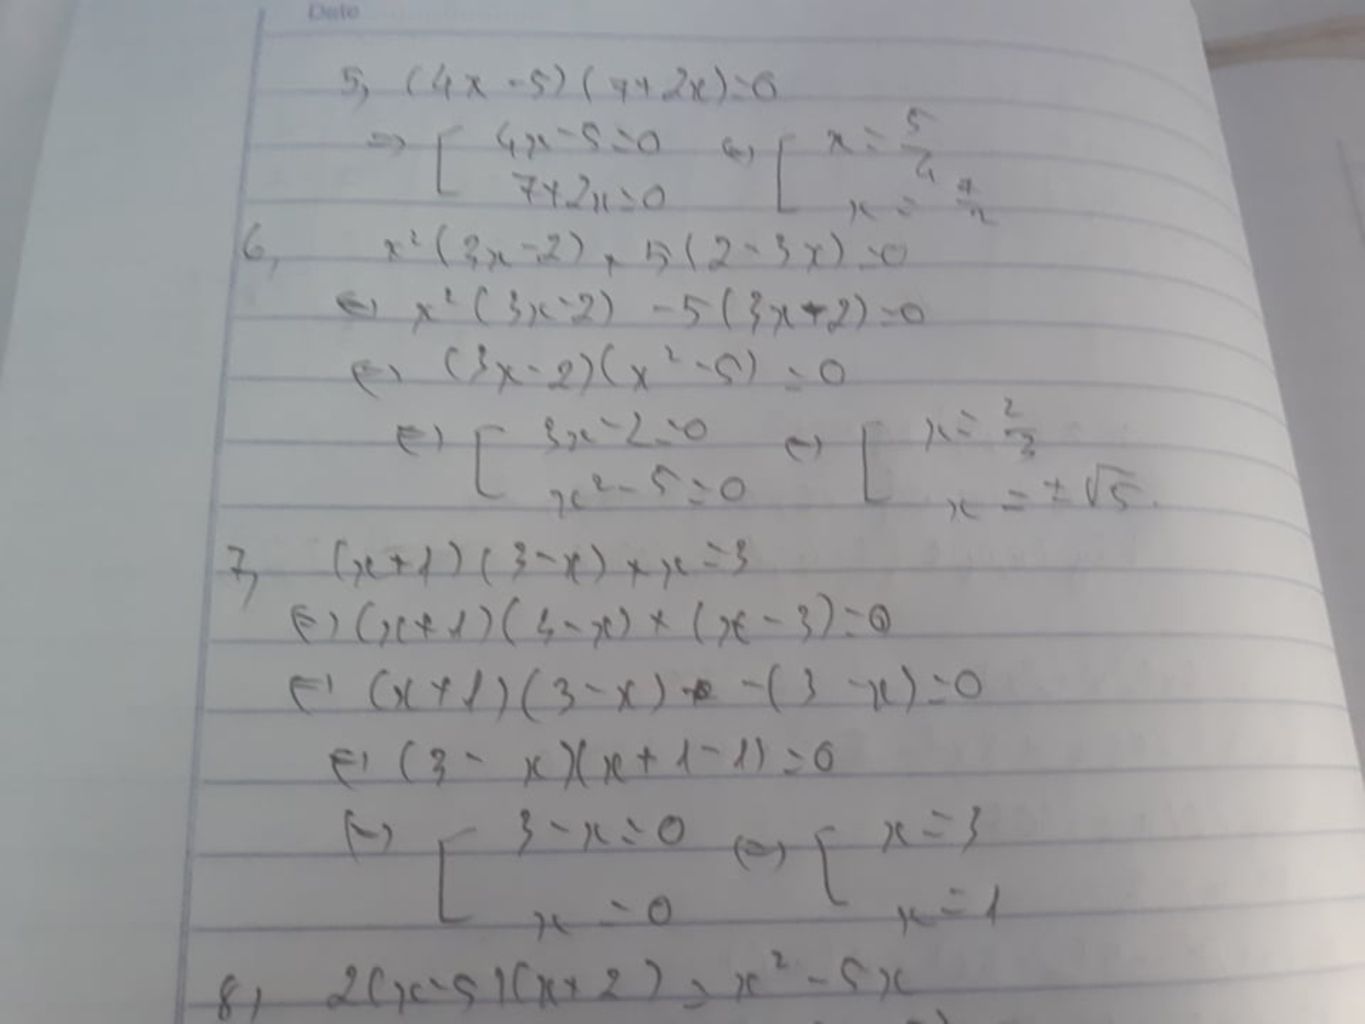 Date
5, (4x - 5)(7 + 2x) = 0
=> [ 4x - 5 = 0 <=> [ x = 5/4
7 + 2x = 0 x = 7/2
6, x² (3x - 2) + 5(2 - 3x) = 0
<=> x² (3x - 2) - 5(3x + 2) = 0
<=> (3x - 2)(x² - 5) = 0
<=> [ 3x - 2 = 0 <=> [ x = 2/3
x² - 5 = 0 x = ± √5.
7, (x + 1)(3 - x) + x = 3
<=> (x + 1)(3 - x) + (x - 3) = 0
<=> (x + 1)(3 - x) - (3 - x) = 0
<=> (3 - x)(x + 1 - 1) = 0
<=> [ 3 - x = 0 <=> [ x = 3
x = 0 x = 1
8, 2(x - 5)(x + 2) = x² - 5x